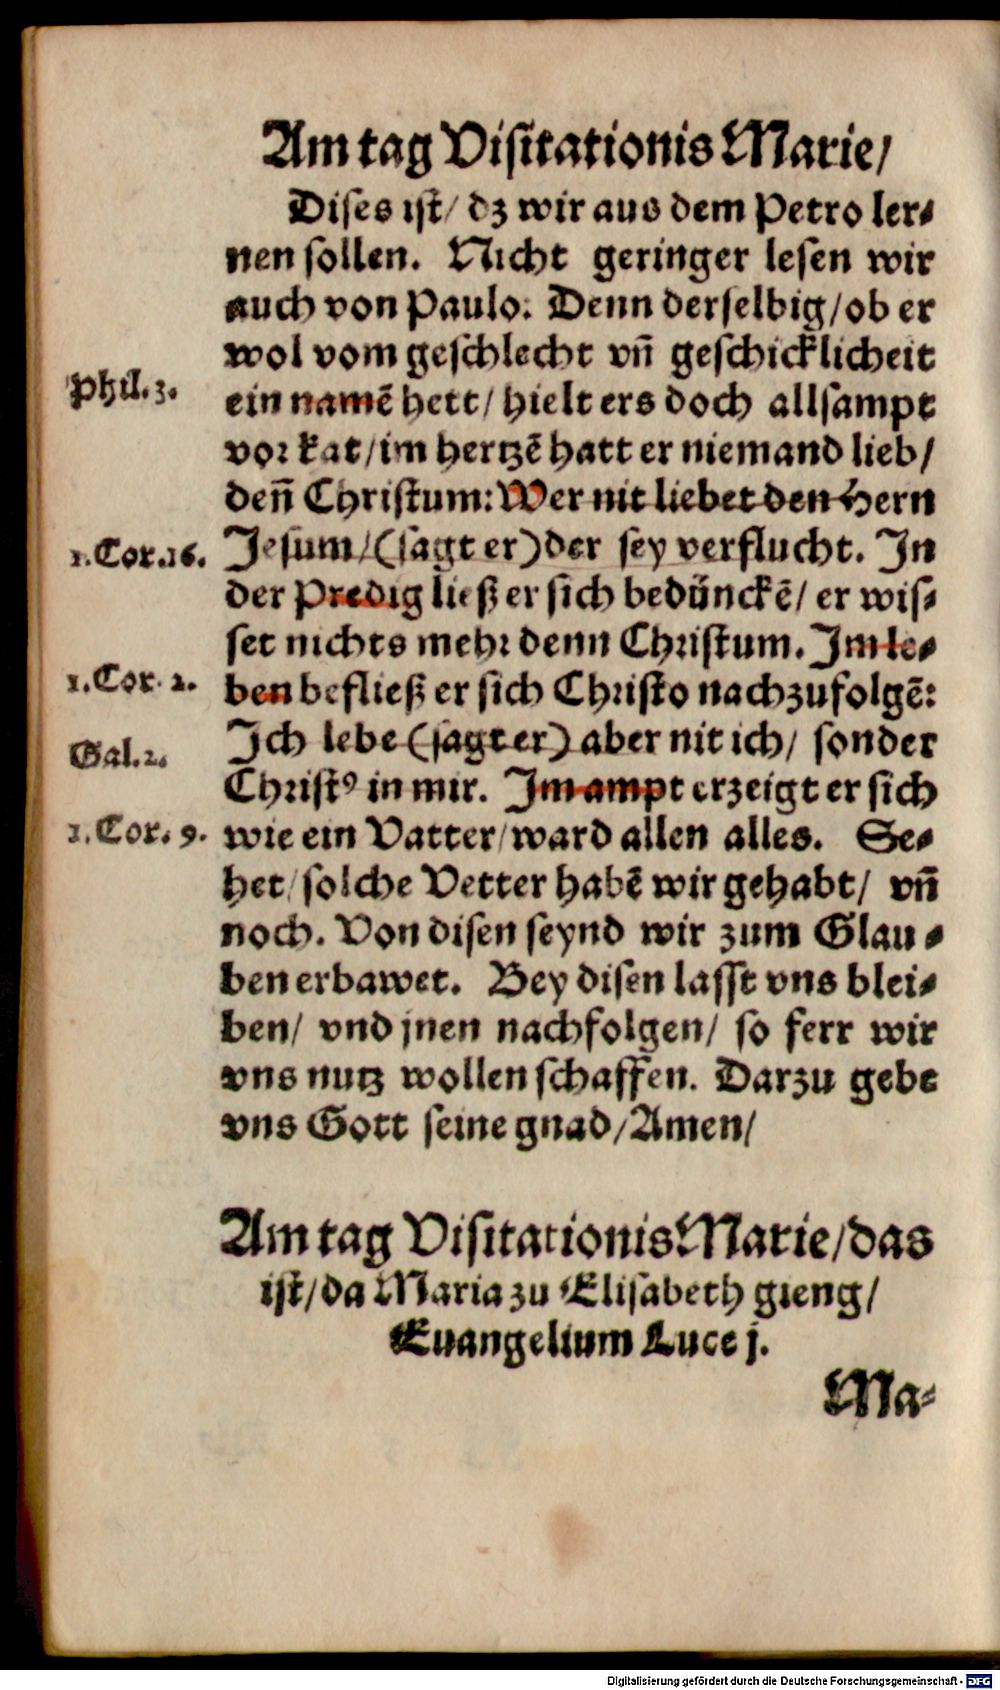 Am tag Visitationis Marie/
Dises ist/ dz wir aus dem Petro ler-
nen sollen. Nicht geringer lesen wir
auch von Paulo: Denn derselbig/ ob er
wol vom geschlecht vñ geschicklicheit
Phil. 3.
ein namẽ hett/ hielt ers doch allsampt
vor kat/ im hertzẽ hatt er niemand lieb/
deñ Christum: Wer nit liebet den Hern
1. Cor. 16.
Jesum/ (sagt er) der sey verflucht. In
der Predig ließ er sich bedünckẽ/ er wis-
set nichts mehr denn Christum. Im le-
1. Cor. 2.
ben befließ er sich Christo nachzufolgẽ:
Gal. 2.
Ich lebe (sagt er) aber nit ich/ sonder
Christꝰ in mir. Im ampt erzeigt er sich
1. Cor. 9.
wie ein Vatter/ ward allen alles. Se-
het/ solche Vetter habẽ wir gehabt/ vñ
noch. Von disen seynd wir zum Glau-
ben erbawet. Bey disen lasst vns blei-
ben/ vnd jnen nachfolgen/ so ferr wir
vns nutz wollen schaffen. Darzu gebe
vns Gott seine gnad/ Amen/
Am tag Visitationis Marie/ das
ist/ da Maria zu Elisabeth gieng/
Euangelium Luce j.
Ma-
Digitalisierung gefördert durch die Deutsche Forschungsgemeinschaft - DFG